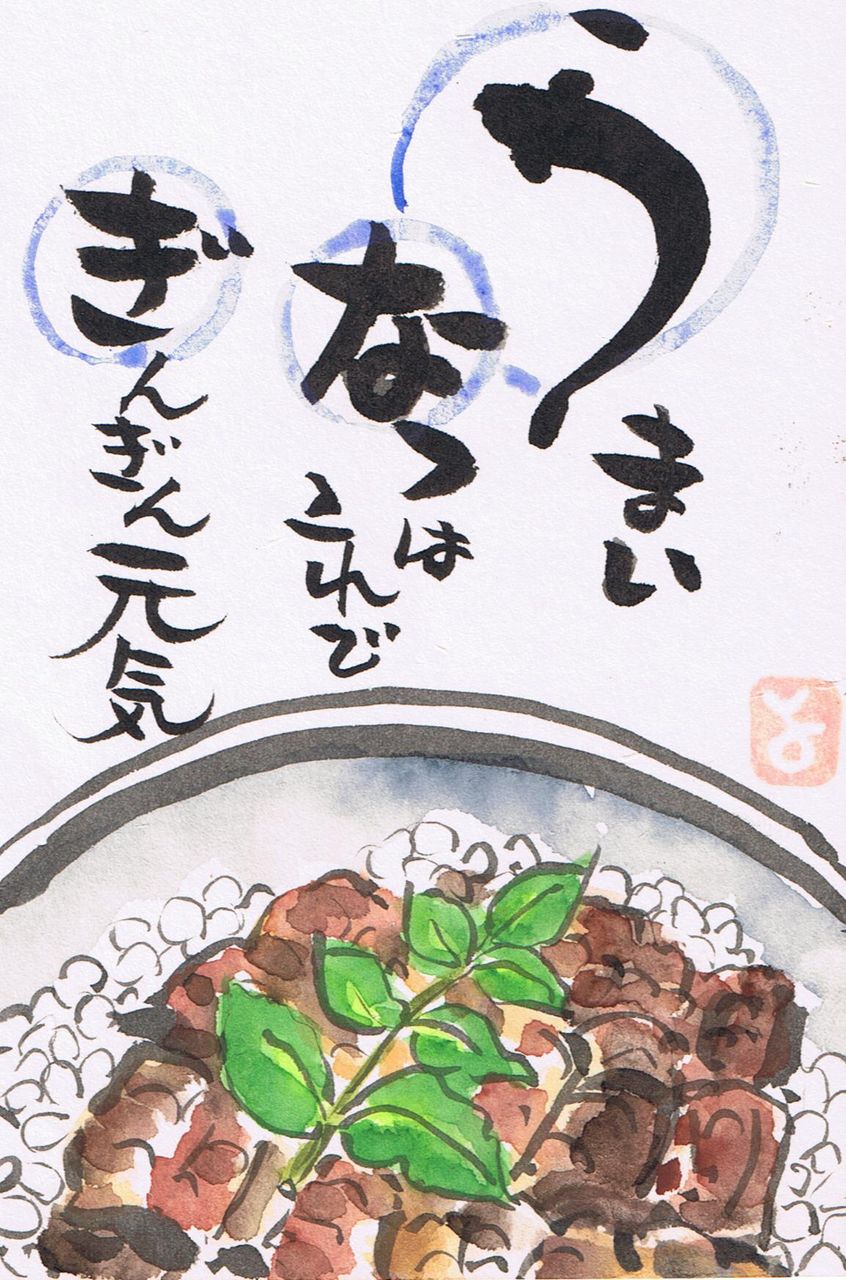 うまい
なつは
これで
ぎんぎん元気
と